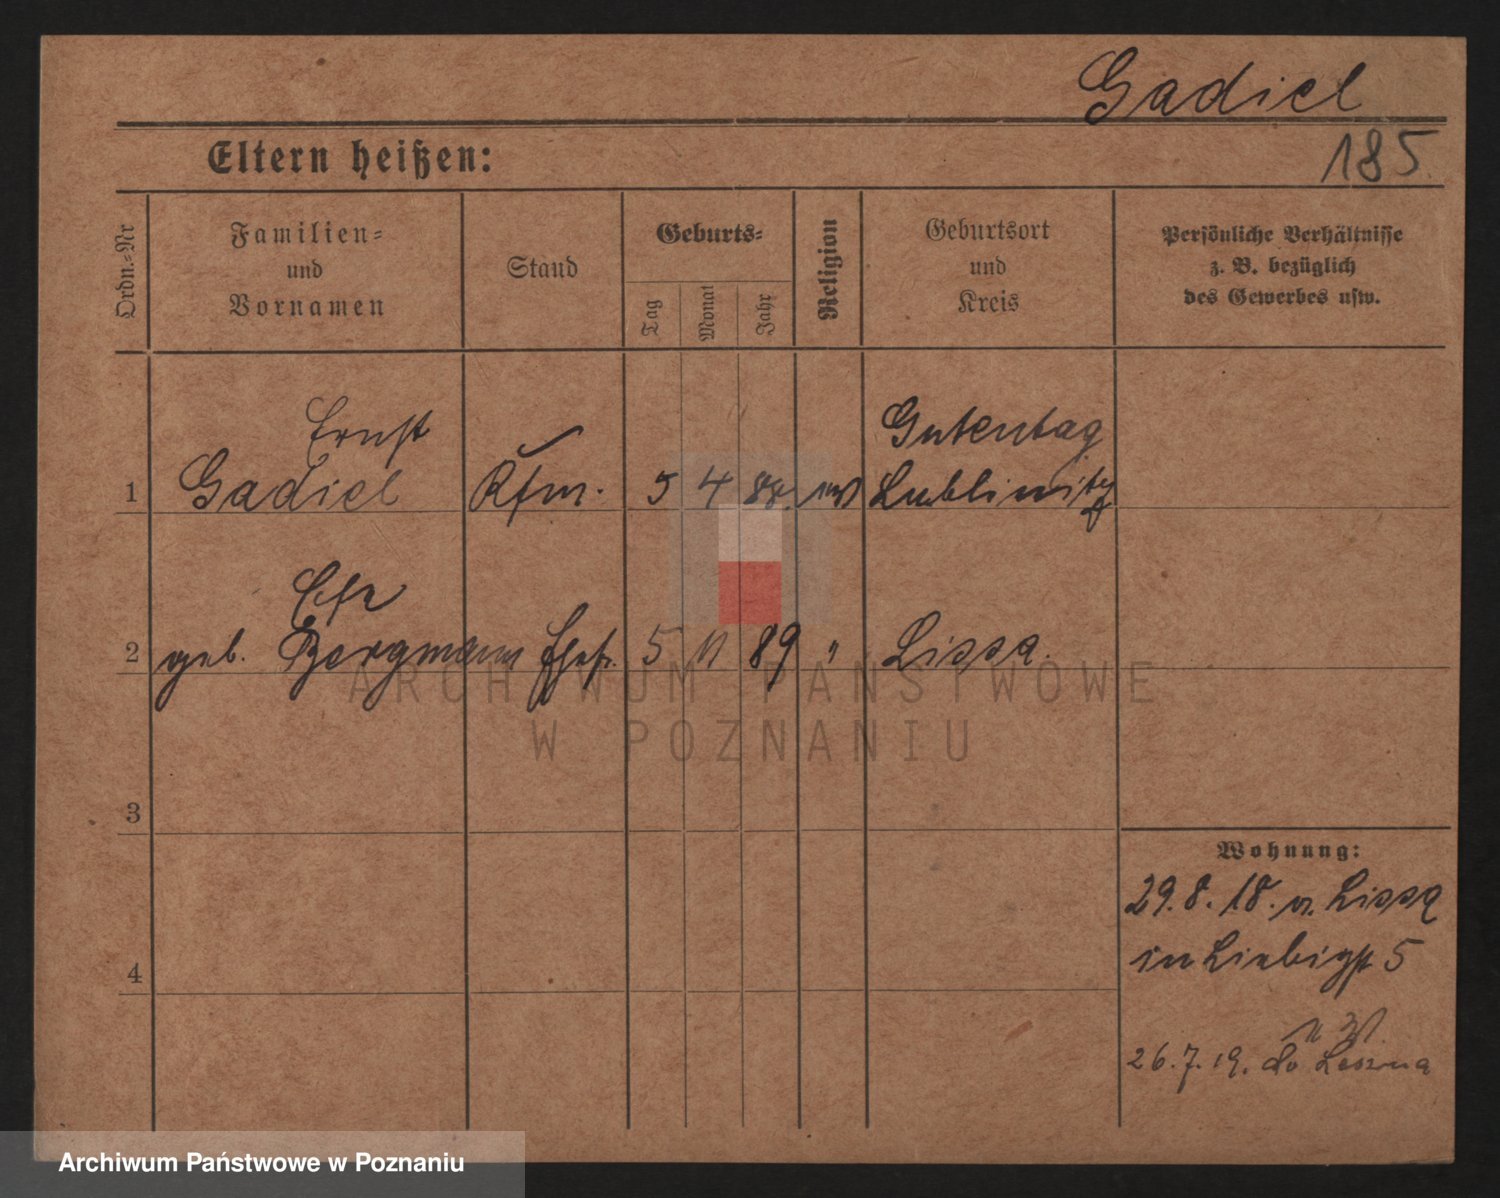 Gadiel
Eltern heißen:
185.
Ordn.-Nr
Familien-
und
Vornamen
Stand
Geburts-
Tag
Monat
Jahr
Religion
Geburtsort
und
Kreis
Persönliche Verhältnisse
z. B. bezüglich
des Gewerbes usw.
Ernst
Gutentag
1 Gadiel Kfm. 5 4 88. Lublinitz
2 geb. Bergmann Ehefr. 5 11 89 " Lissa.
3
Wohnung:
29.8.18. v. Lissa
in Liebigst 5
4
26.7.19. do Leszna
ARCHIWUM PAŃSTWOWE
W POZNANIU
Archiwum Państwowe w Poznaniu